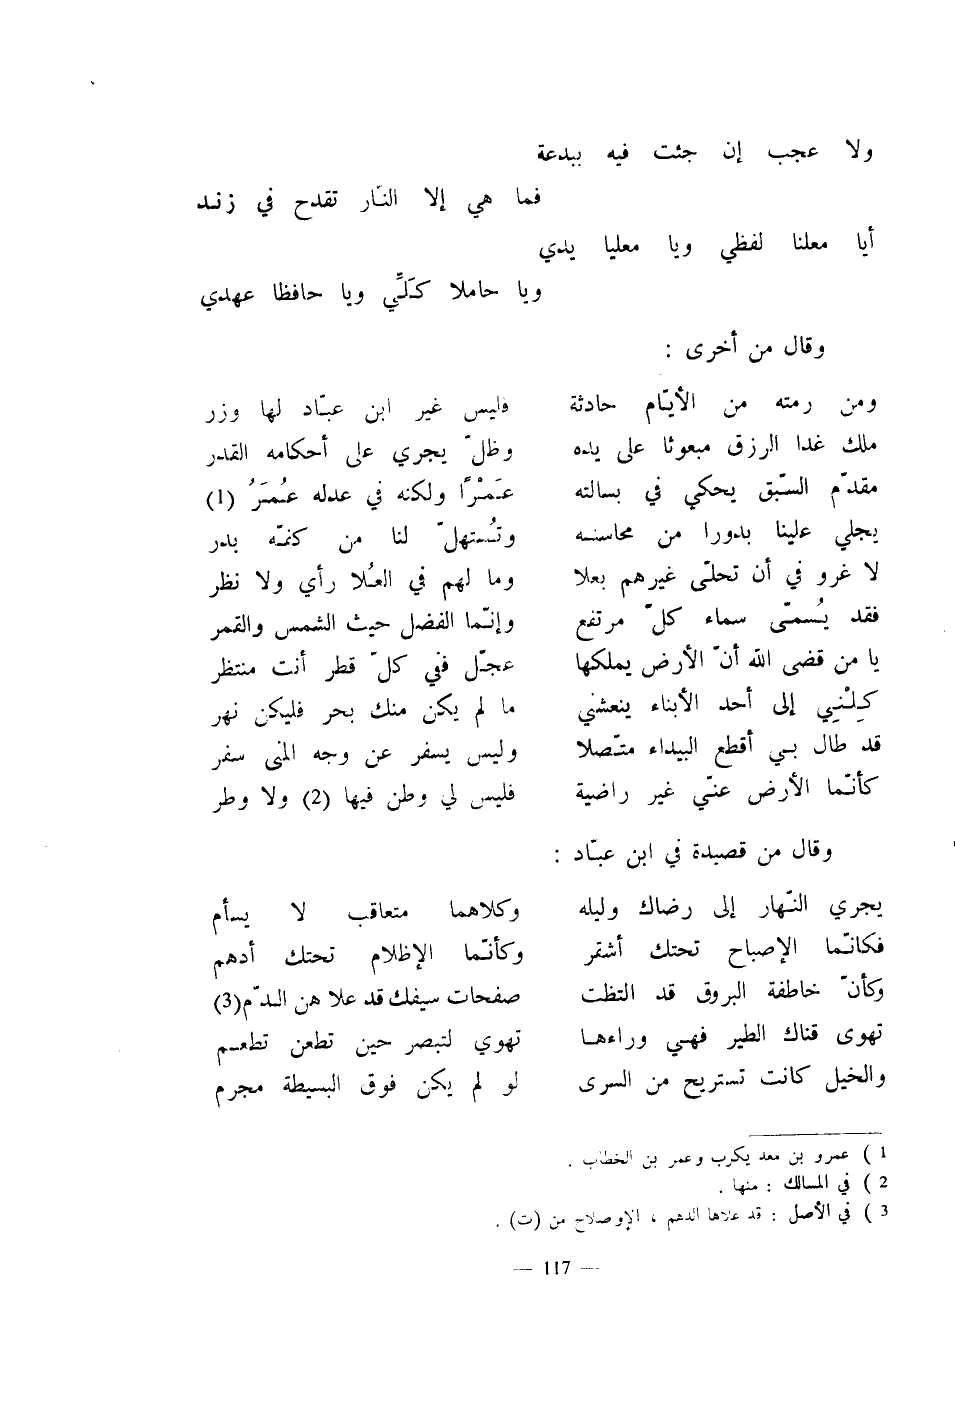 ولا عجب إن جئت فيه ببدعة
فما هي إلا النّار تقدح في زند
أيا معلنا لفظي ويا معليا يدي
ويا حاملا كَلِّي ويا حافظا عهدي
وقال من أخرى :
ومن رمته من الأيّام حادثة فليس غير ابن عبّاد لها وزر
ملك غدا الرزق مبعوثا على يده وظلّ يجري على أحكامه القدر
مقدّم السّبق يحكي في بسالته عَمْرًا ولكنه في عدله عُمَرُ (1)
يجلي علينا بدورا من محاسنه وتُستهلّ لنا من كفّه بدر
لا غرو في أن تحلّى غيرهم بعلا وما لهم في العُلا رأي ولا نظر
فقد يُسمّى سماء كلّ مرتفع وإنّما الفضل حيث الشمس والقمر
يا من قضى الله أنّ الأرض يملكها عجّل ففي كلّ قطر أنت منتظر
كِلْنِي إلى أحد الأبناء ينعشني ما لم يكن منك بحر فليكن نهر
قد طال بي أقطع البيداء متّصلا وليس يسفر عن وجه المنى سفر
كأنّما الأرض عنّي غير راضية فليس لي وطن فيها (2) ولا وطر
وقال من قصيدة في ابن عبّاد :
يجري النّهار إلى رضاك وليله وكلاهما متعاقب لا يسأم
فكانّما الإصباح تحتك أشقر وكأنّما الإظلام تحتك أدهم
وكأنّ خاطفة البروق قد التظت صفحات سيفك قد علا هن الدّم(3)
تهوى قناك الطير فهي وراءها تهوي لتبصر حين تطعن تطعم
والخيل كانت تستريح من السرى لو لم يكن فوق البسيطة مجرم
1 ) عمرو بن معد يكرب وعمر بن الخطاب .
2 ) في المسالك : منها .
3 ) في الأصل : قد علاها الدهم ، الإوصلاح من (ت) .
— 117 —